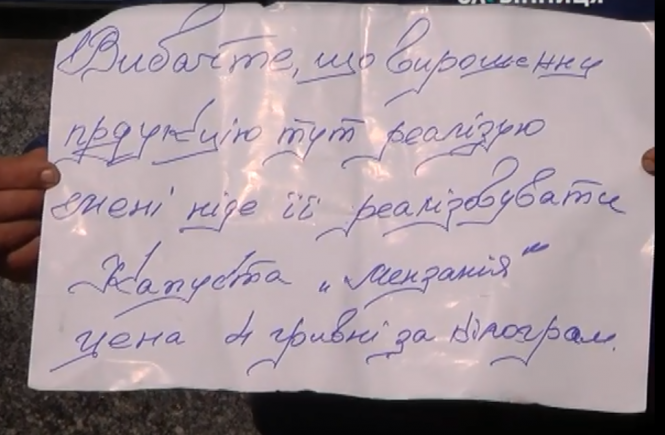 Вибачте, що вирощенну
прдукцію тут реалізую
мені ніде її реалізовувати
Капуста „Мензанія“
цена 4 гривні за кілограм.